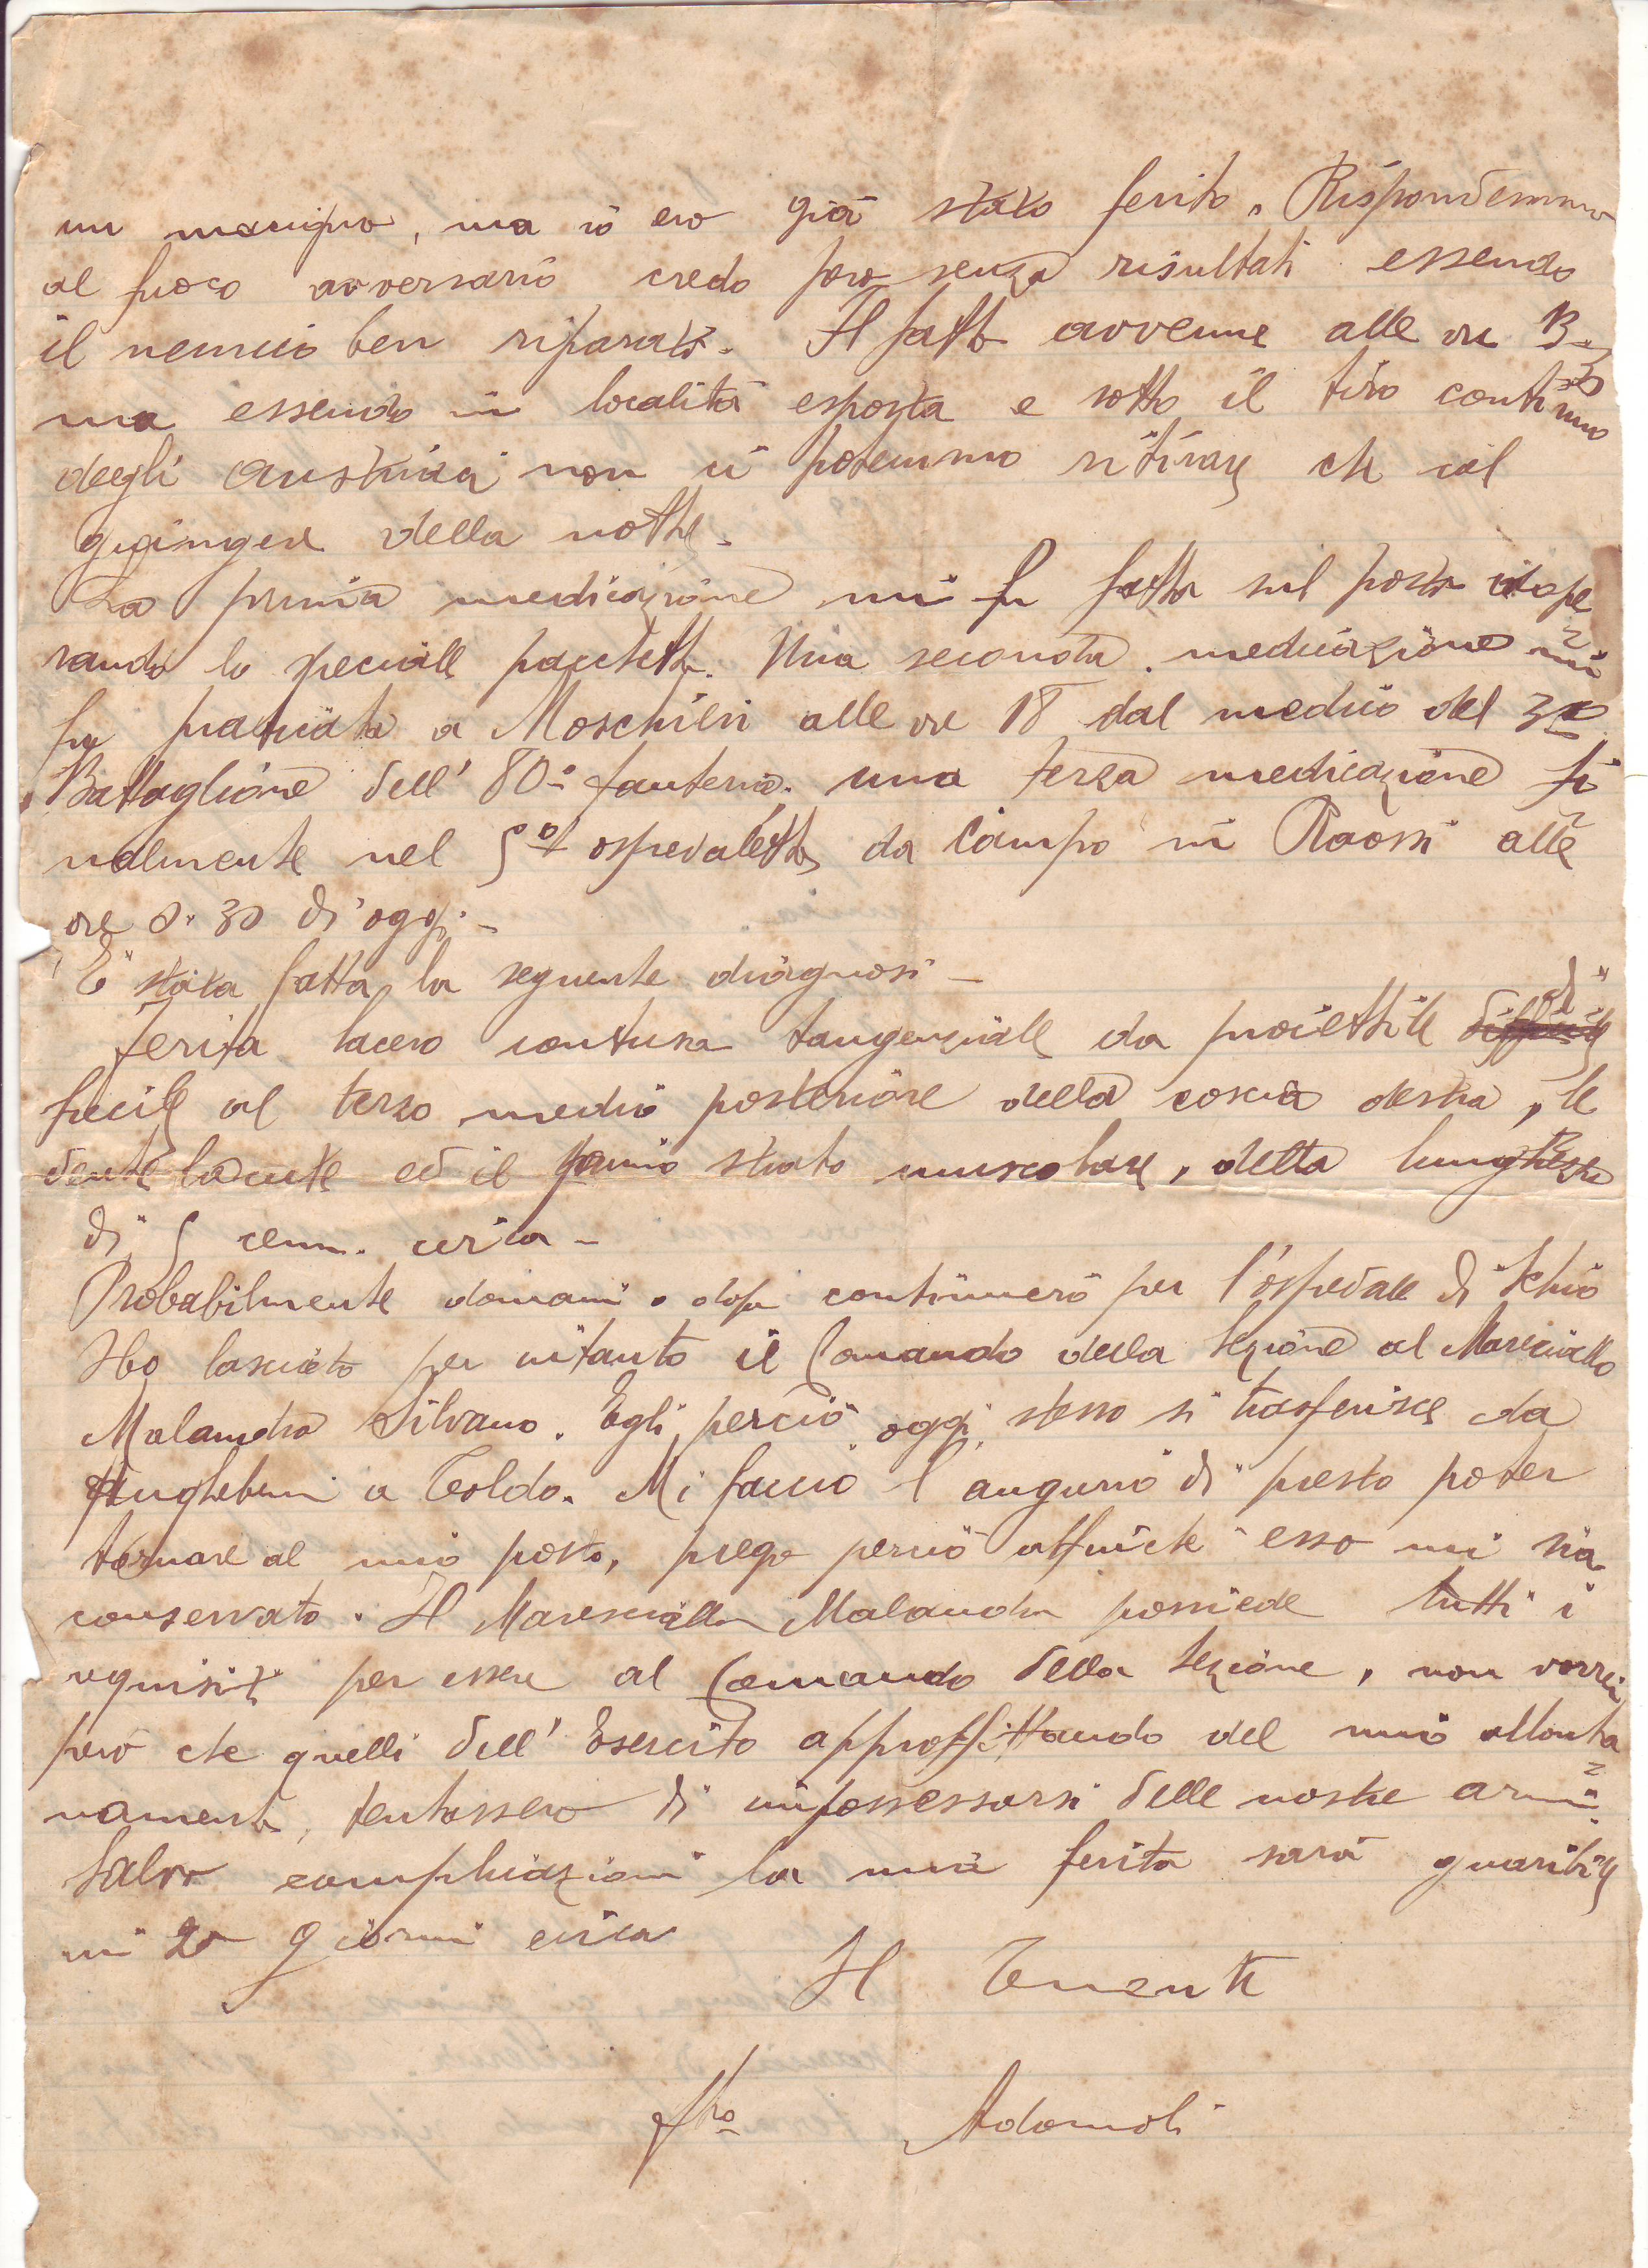 un macigno, ma io ero già stato ferito. Rispondemmo
al fuoco avversario credo pero senza risultati essendo
il nemico ben riparato. Il fatto avvenne alle ore 13.30
ma essendo in località esposta e sotto il tiro continuo
degli austriaci non ci potemmo ritirare che col
giungere della notte.
La prima medicazione mi fu fatta sul posto adope
rando lo speciale pacchetto. Una seconda medicazione mi
fu praticata a Moscheri alle ore 18 dal medico del 3º
Battaglione dell' 80º fanteria. una terza medicazione fi
nalmente nel ospedaletto da Campo in Raossi alle
ore 8.30 di oggi.
E' stata fatta la seguente diagnosi -
ferita lacero contusa tangenziale da proiettile di
fucile al terzo medio posteriore della coscia destra, le
dente la cute ed il primo strato muscolare, della lunghezza
di 5 cenm. circa -
Probabilmente domani o dopo continuerò per l'ospedale di Schio
Ho lasciato per intanto il Comando della Sezione al Maresciallo
Malandra Silvano. Egli perciò oggi stesso si trasferisce da
Anghebeni a Coldo. Mi faccio l'augurio di presto poter
tornare al mio posto, prego perciò affinchè esso mi sia
conservato. Il Maresciallo Malandra possiede tutti i
requisiti per essere al Comando della Sezione, non vorrei
però che quelli dell' Esercito approffittando del mio allonta
namento, tentassero di impossessarsi delle nostre armi.
Salvo complicazioni la mia ferita sarà guaribile
in 20 giorni circa
Il Tenente
fto Adamoli